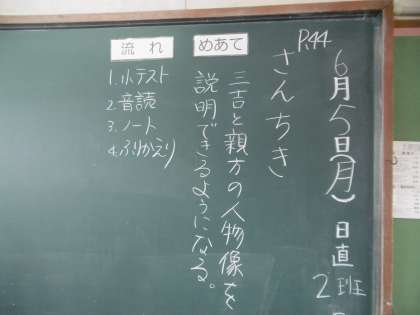 P.44
6月5日(月)
日直
2班
さんちき
めあて
三吉と親方の人物像を
説明できるようになる。
流れ
1. 小テスト
2. 音読
3. ノート
4. ふりかえり